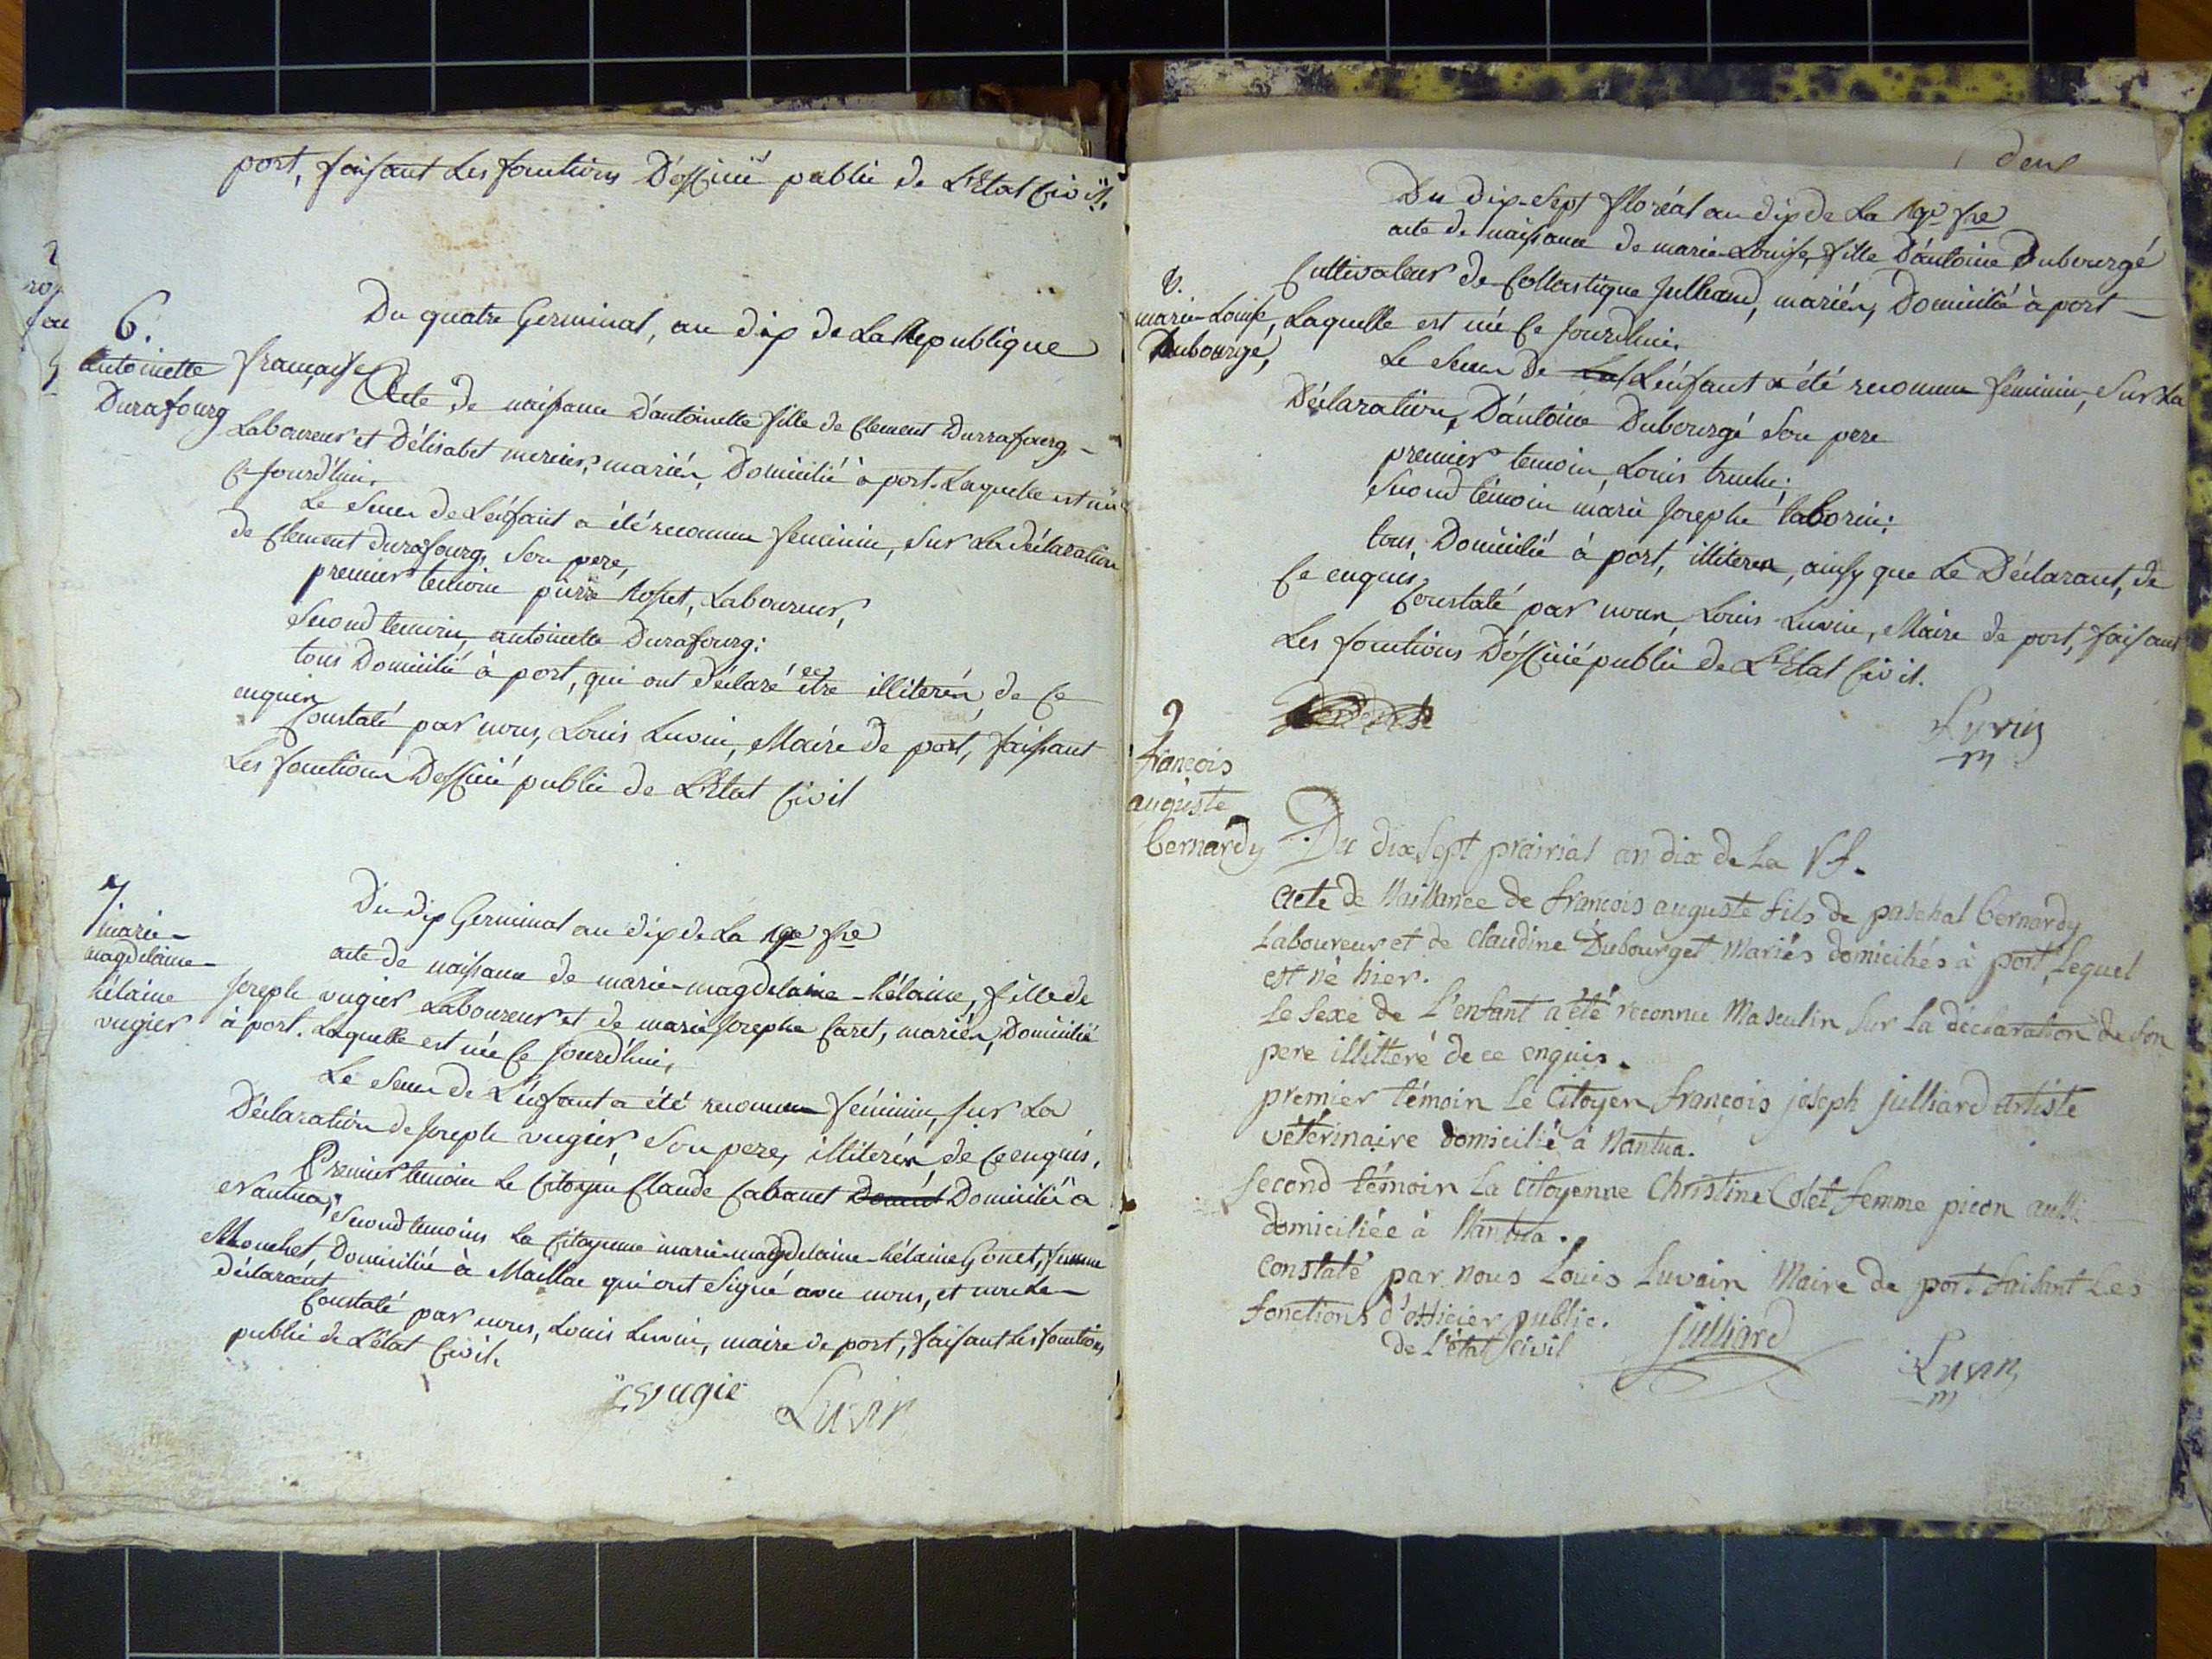 port, faisant Les fonctions D'officié public de L'Etat Civil.
6.
antoinette
Durafourg
Du quatre Germinal, an dix de La Republique
française
Acte de naissance D'antoinette fille de Clement Durrafourg,
Laboureur et D'élisabet mercier, mariés, Domicilié à port. Laquelle est née
Ce jourd'hui.
Le Sexe de L'enfant a été reconnu feminin, Sur La déclaration
de Clement durafourg, Son pere,
premier temoin pierre Rosset, Laboureur,
Second temoin, antoinette Durafourg:
tous Domicilié à port, qui ont déclaré etre illiterés, de Ce
enquis
Constaté par nous, Louis Luvin, Maire de port, faissant
Les fonctions D'officié public de L'Etat Civil
7
marie-
magdelaine-
hélaine
vugier
Du dix Germinal an dix de La Rque fse
acte de naissance de marie-magdelaine-hélaine, fille de
Joseph vugier Laboureur et de marie Josephe Caret, mariés, Domicilié
à port. Laquelle est née Ce jourd'hui,
Le Sexe de L'enfant a été reconnu féminin, Sur La
Déclaration de Joseph vugier, Son pere, illiterés de Ce enquis,
Premier temoin Le Citoyen Claude Cabanet Domicilié a
Nantua, Second temoins La Citoyenne marie-magdelaine-hélaine Gonet, femme
Mouchet, Domiciliée à Maillac qui ont Signé avec nous, et non Le
déclarant
Constaté par nous, Louis Luvin, maire de port, faisant Les fonctions
public de L'état Civil.
Luvin
deux
8.
marie-Louise,
Dubourgé,
Du dix-Sept floréal an dix de La Rque fse
acte de naissance de marie-Louise, fille D'antoine Dubourgé
Cultivateur de Collastique Julliand, mariés, Domicilié à port
Laquelle est née Ce jourd'hui.
Le Sexe de L'enfant a été reconnu féminin, Sur La
Déclaration, D'antoine Dubourgé Son pere
premier temoin, Louis truche;
Second témoin marie Josephe Taborin:
tous, Domicilié à port, illiterés, ainsy que Le Déclarant, de
Ce enquis.
Constaté par nous, Louis Luvin, Maire de port, faisant
Les fonctions D'officié public de L'Etat Civil.
Luvin
m
9
françois
auguste
bernardy
Du dix Sept prairial an dix de La Rf.
acte de Naissance de françois auguste fils de paschal bernardy
Laboureur et de claudine Dubourget Mariés domiciliés à port, Lequel
est né hier.
Le Sexe de L'enfant a été reconnu Masculin Sur La déclaration de Son
pere illitteré de ce enquis.
premier témoin Le Citoyen françois joseph julliard artiste
vétérinaire domicilié à Nantua.
Second témoin La Citoyenne Christine Colet femme picon aussi
domiciliée à Nantua.
Constaté par nous Louis Luvain Maire de port faisant Les
fonctions d'officier public.
de L'état Civil
julliard
Luvin
m